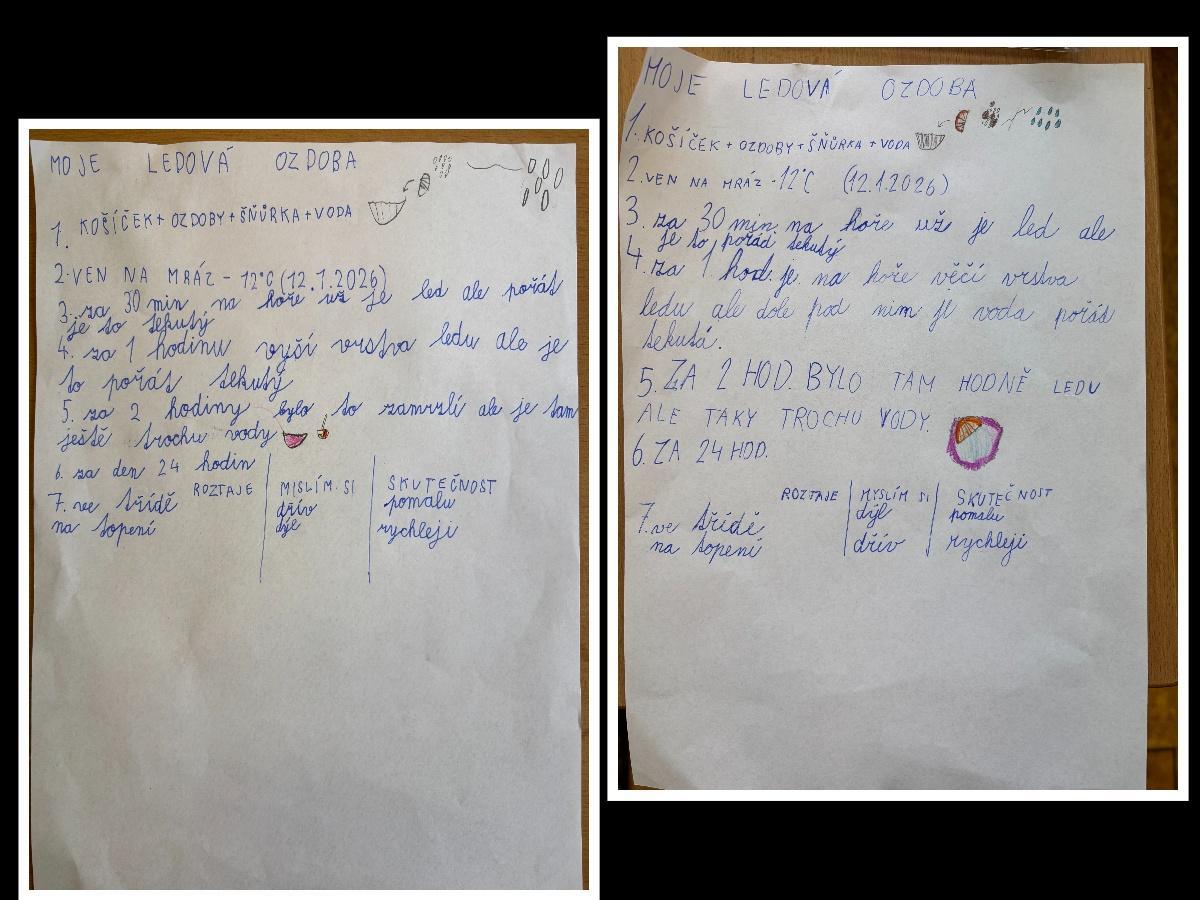 MOJE LEDOVÁ OZDOBA
1. KOŠÍČEK + OZDOBY + ŠŇŮRKA + VODA
2. VEN NA MRÁZ - 12°C (12.1.2026)
3. za 30 min na hoře už je led ale pořát
je to tekutý
4. za 1 hodinu vyší vrstva ledu ale je
to pořát tekutý
5. za 2 hodiny bylo to zamrzlí ale je tam
ještě trochu vody
6. za den 24 hodin
ROZTAJE MISLÍM SI SKUTEČNOST
7. ve třídě dřív pomalu
na topení dýl rychleji
MOJE LEDOVÁ OZDOBA
1. KOŠÍČEK + OZDOBY + ŠŇŮRKA + VODA
2. VEN NA MRÁZ -12°C (12.1.2026)
3. za 30 min. na hoře už je led ale
je to pořád tekutý
4. za 1 hod. je na hoře věčí vrstva
ledu ale dole pod nim je voda pořád
tekutá.
5. ZA 2 HOD. BYLO TAM HODNĚ LEDU
ALE TAKY TROCHU VODY.
6. ZA 24 HOD.
ROZTAJE MYSLÍM SI SKUTEČNOST
7. ve třídě dýl pomalu
na topení dřív rychleji